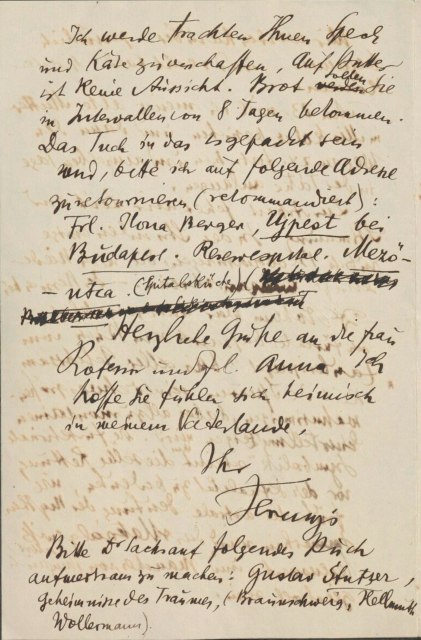 Ich werde trachten Ihnen Speck
und Käse zu verschaffen, auf Butter
ist keine Aussicht. Brot sollen Sie
in Intervallen von 8 Tagen bekommen.
Das Tuch in das es gepackt sein
wird, bitte ich auf folgende Adresse
zu retournieren (rekommandiert):
Frl. Ilona Berger, Ujpest bei
Budapest. Reservespital. Mező-
-utca. (Spitalsküche)
Herzliche Grüße an die Frau
Professor und Frl. Anna. Ich
hoffe Sie fühlen sich heimisch
in meinem Vaterlande.
Ihr
Ferenczi
Bitte Dr Sachs auf folgendes Buch
aufmerksam zu machen: Gustav Stutzer,
Geheimnisse des Traumes, (Braunschweig, Hellmuth
Wollermann).